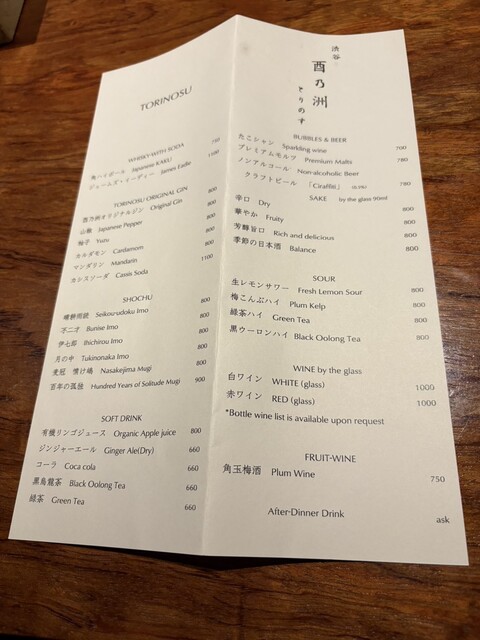 TORINOSU
WHISKY WITH SODA
角ハイボール Japanese KAKU 750
ジェームズ・イーディー James Eadie 1100
TORINOSU ORIGINAL GIN
酉乃洲オリジナルジン Original Gin 800
山椒 Japanese Pepper 800
柚子 Yuzu 800
カルダモン Cardamom 800
マンダリン Mandarin 800
カシスソーダ Cassis Soda 1100
SHOCHU
晴耕雨読 Seikou-udoku Imo 800
不二才 Bunise Imo 800
伊七郎 Ihichirou Imo 800
月の中 Tukinonaka Imo 800
麦冠 情け嶋 Nasakejima Mugi 800
百年の孤独 Hundred Years of Solitude Mugi 900
SOFT DRINK
有機リンゴジュース Organic Apple juice 800
ジンジャーエール Ginger Ale(Dry) 660
コーラ Coca cola 660
黒烏龍茶 Black Oolong Tea 660
緑茶 Green Tea 660
渋谷
酉乃洲
とりのす
BUBBLES & BEER
たこシャン Sparkling wine 700
プレミアムモルツ Premium Malts 780
ノンアルコール Non-alcoholic Beer
クラフトビール 「Ciraffiti」 780
SAKE by the glass 90ml
辛口 Dry 800
華やか Fruity 800
芳醇旨口 Rich and delicious 800
季節の日本酒 Balance 800
SOUR
生レモンサワー Fresh Lemon Sour 800
梅こんぶハイ Plum Kelp 800
緑茶ハイ Green Tea 800
黒ウーロンハイ Black Oolong Tea 800
WINE by the glass
白ワイン WHITE (glass) 1000
赤ワイン RED (glass) 1000
*Bottle wine list is available upon request
FRUIT-WINE
角玉梅酒 Plum Wine 750
After-Dinner Drink ask